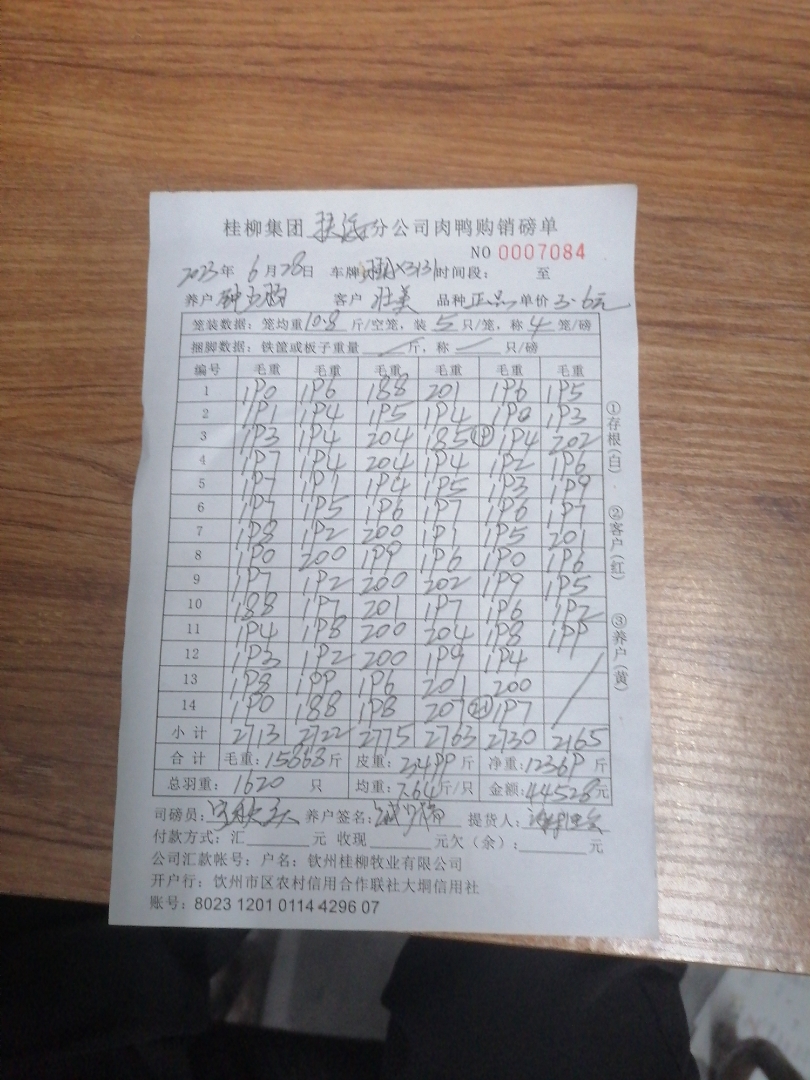 桂柳集团 扶沅 分公司肉鸭购销磅单
NO 0007084
2023年 6月28日 车牌 X3131 时间段: 至
养户 客户 壮美 品种 正品 单价 3.6元
笼装数据: 笼均重 10.8 斤/空笼, 装 5 只/笼, 称 4 笼/磅
捆脚数据: 铁筐或板子重量 斤, 称 只/磅
编号 毛重 毛重 毛重 毛重 毛重 毛重
1 1P0 1P6 188 201 1P6 1P5
2 1P1 1P4 1P5 1P4 1P0 1P3
3 1P3 1P4 204 185 1P4 202
4 1P7 1P4 204 1P4 1P2 1P6
5 1P7 1P1 1P4 1P5 1P3 1P9
6 1P7 1P5 1P6 1P7 1P6 1P7
7 1P8 1P2 200 1P1 1P5 201
8 1P0 200 1PP 1P6 1P0 1P6
9 1P7 1P2 200 202 1P9 1P5
10 188 1P7 201 1P7 1P6 1P2
11 1P4 1P8 200 204 1P8 1PP
12 1P3 1P2 200 1P9 1P4
13 1P8 1PP 1P6 201 200
14 1P0 188 1P8 207 1P7
小计 2713 2722 2775 2763 2730 2165
合计 毛重: 15868斤 皮重: 34PP 斤 净重: 1236P 斤
总羽重: 1620 只 均重: 7.64斤/只 金额: 44528元
司磅员: 养户签名: 提货人:
付款方式: 汇 元 收现 元欠(余): 元
公司汇款帐号: 户名: 钦州桂柳牧业有限公司
开户行: 钦州市区农村信用合作联社大垌信用社
账号: 8023 1201 0114 4296 07
①存根(白) ②客户(红) ③养户(黄)